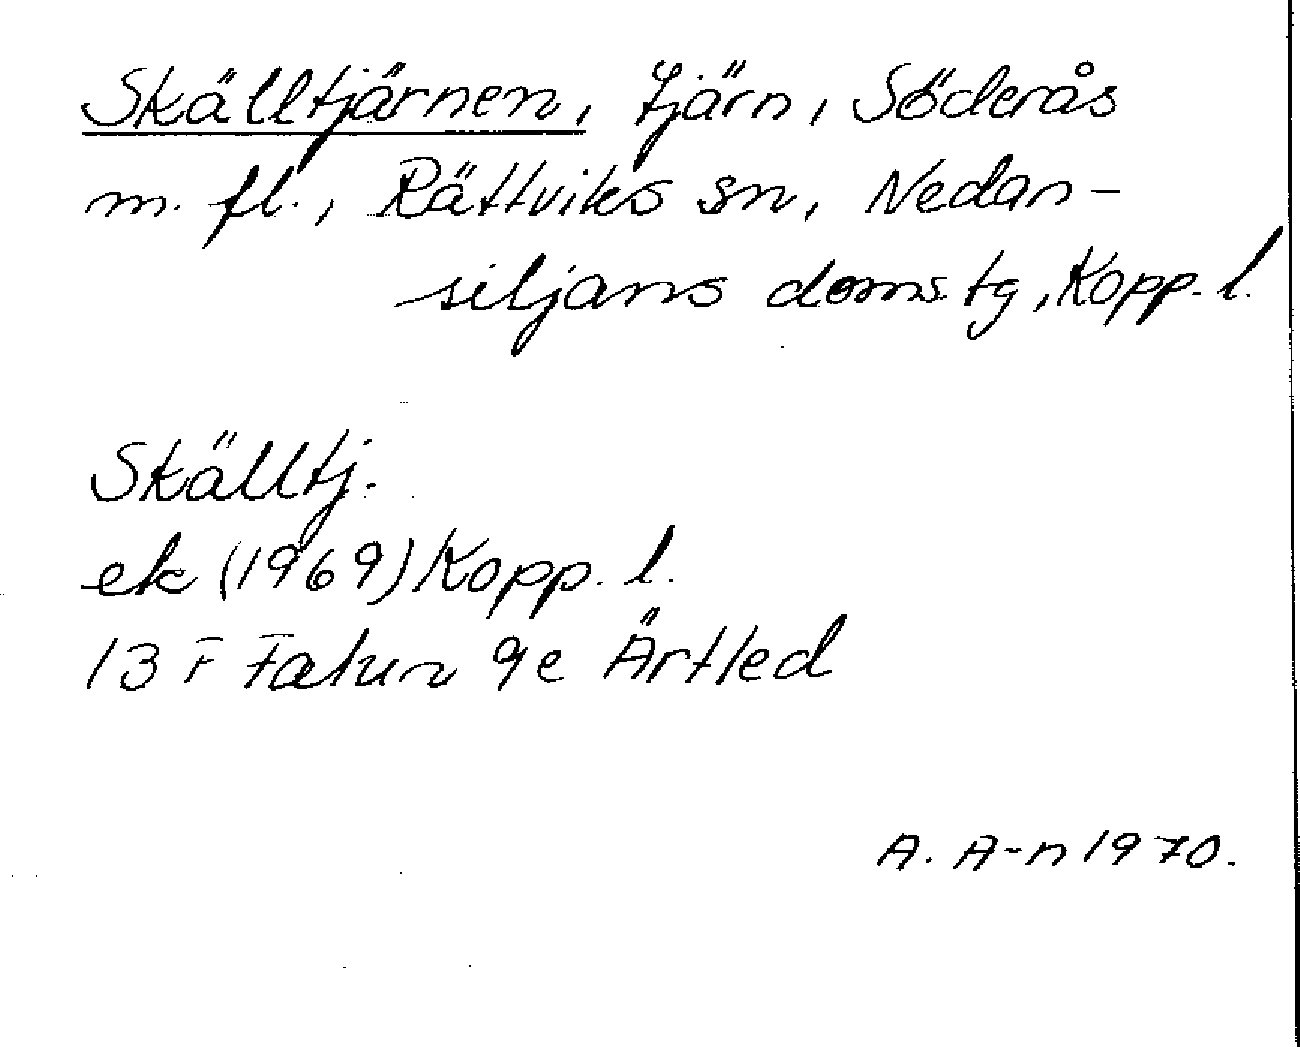 Skälltjärnen, tjärn, Söderås
m. fl., Rättviks sn, Nedan-
siljans doms. tg, Kopp. l.
Skälltj.
ek (1969) Kopp. l.
13 F Falun 9e Ärtled
A. A-n 1970.